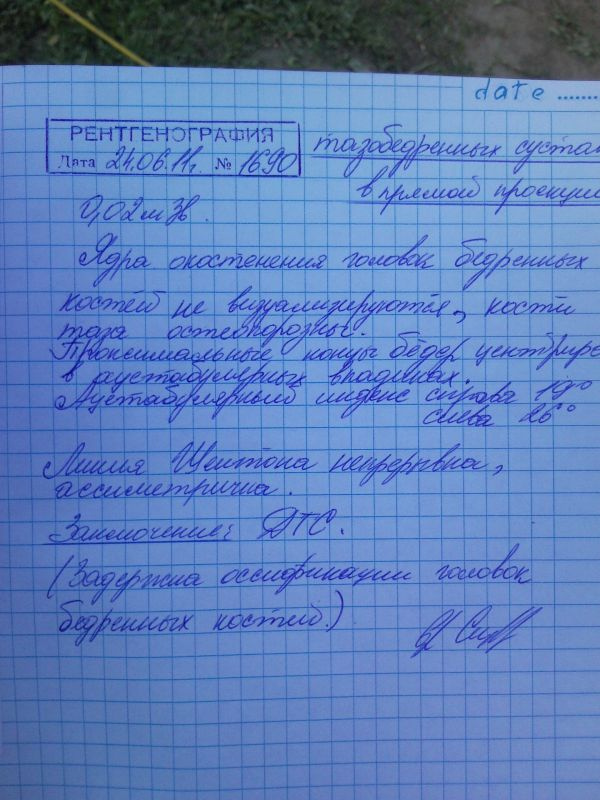 date ........
РЕНТГЕНОГРАФИЯ
Дата 24.06.11г. № 1690
тазобедренных суста
в прямой проекции
0,02 м Зв.
Ядра окостенения головок бедренных
костей не визуализируются, кости
таза остеопорозные.
Проксимальные концы бёдер центриро
в ацетабулярных впадинах.
Ацетабулярный индекс справа 19°
слева 26°
Линия Шентона непрерывна,
ассиметрична.
Заключение: ДТС.
(Задержка оссификации головок
бедренных костей.)